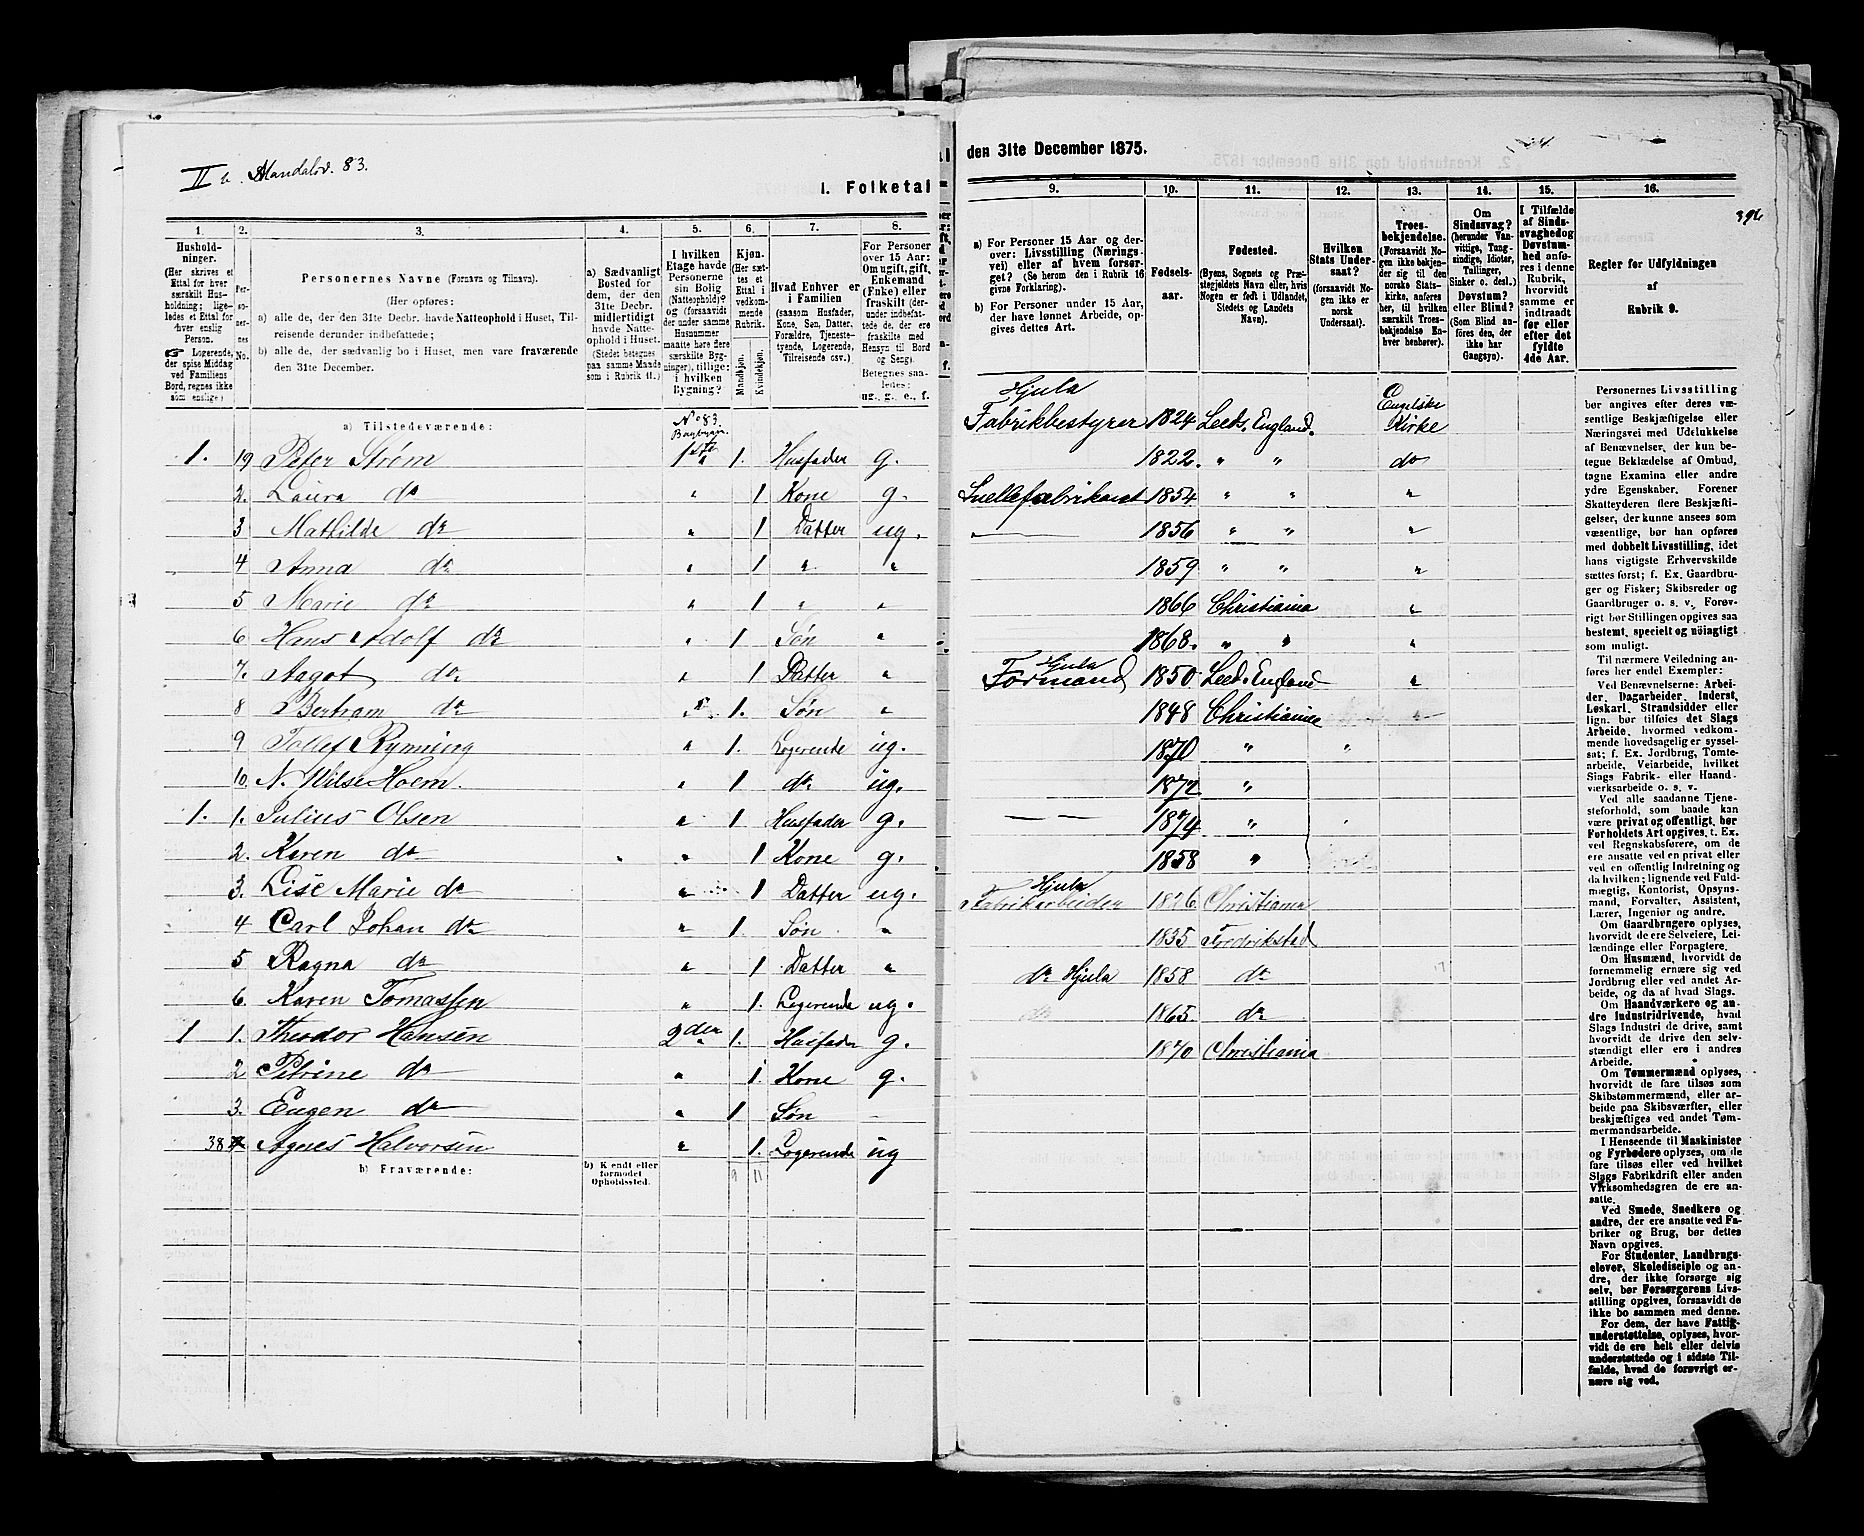 II b. Maridalsv. 83.
I. Folketal
1. 2. 3. 4. 5. 6. 7. 8.
Hushold-
ninger.
(Her skrives et
Ettal for hver
særskilt Hus-
holdning; lige-
ledes et Ettal for
hver enslig
Person.
☞ Logerende,
der spise Middag
ved Familiens
Bord, regnes ikke
som enslige)
Personernes No.
Personernes Navne (Fornavn og Tilnavn).
(Her opføres:
a) alle de, der den 31te Decbr. havde Natteophold i Huset, Til-
reisende derunder indbefattede;
b) alle de, der sædvanlig bo i Huset, men vare fraværende
den 31te December.
a) Sædvanligt
Bosted for
dem, der den
31te Decbr.
midlertidigt
havde Natte-
ophold i Huset.
(Stedet betegnes
paa samme Maade
som i Rubrik 11.)
I hvilken
Etage havde
Personerne
sin Bolig
(Natteophold)?
og (forsaavidt
der under samme
Husnummer
maatte høre flere
særskilte Byg-
ninger), tillige:
i hvilken
Bygning?
Kjøn.
(Her sæt-
tes et
Ettal i
vedkom-
mende
Rubrik.
Mandkjøn.
Kvindekjøn.
Hvad Enhver er
i Familien
(saasom Husfader,
Kone, Søn, Datter,
Forældre, Tjeneste-
tyende, Logerende,
Tilreisende osv.)
For Personer
over 15 Aar:
Om ugift, gift,
Enkemand
(Enke) eller
fraskilt (der-
under indbefat-
tede de, der ere
fraskilte med
Hensyn til Bord
og Seng).
Betegnes saa-
ledes:
ug., g., e., f.
a) Tilstedeværende:
No 83.
Bagbygn.
1. 19 Peter Strøm 1ste 1. Husfader g.
2. Laura do " 1 Kone g.
3 Mathilde do " 1 Datter ug.
4 Anna do " 1 " "
5 Marie do " 1 " "
6 Hans Adolf do " 1 Søn "
7. Aagot do " 1 Datter "
8 Bertram do " 1. Søn "
9 Tollef Rynning " 1. Logerende ug.
10. N. Wilse Hoem. " 1 do ug.
1. 1. Julius Olsen " 1 Husfader g.
2. Karen do " " 1 Kone g.
3. Lise Marie do " 1 Datter ug.
4 Carl Johan do " 1. Søn "
5 Ragna do " 1 Datter "
6. Karen Tomassen " 1. Logerende ug.
1 1. Theodor Hansen 2den 1. Husfader g.
2 Petrine do " 1. Kone g.
3. Eugen do " 1 Søn
38 Agnes Halvorsen " 1. Logerende ug
b) Fraværende:
b) Kendt eller
formodet
Opholdssted.
9 11
den 31te December 1875.
396
9. 10. 11. 12. 13. 14. 15. 16.
a) For Personer 15 Aar og der-
over: Livsstilling (Nærings-
vei) eller af hvem forsør-
get? (Se herom den i Rubrik 16
givne Forklaring).
b) For Personer under 15 Aar,
der have lønnet Arbeide, op-
gives dettes Art.
Fødsels-
aar.
Fødested.
(Byens, Sognets og Præ-
stegjeldets Navn eller, hvis
Nogen er født i Udlandet,
Stedets og Landets
Navn).
Hvilken
Stats Under-
saat?
(forsaavidt No-
gen ikke er
norsk
Undersaat).
Troes-
bekjendelse.
(Forsaavidt No-
gen ikke bekjen-
der sig til den
norske Stats-
kirke, anføres
her, til hvilken
særskilt Troes-
bekjendelse En-
hver henhører).
Om
Sindssvag?
(herunder Van-
vittige, Tung-
sindige, Idioter,
Tullinger,
Sinker o. desl.)
Døvstum?
eller Blind?
(Som Blind an-
føres den, der
ikke har
Gangsyn).
I Tilfælde
af Sinds-
svaghed og
Døvstum-
hed anfø-
res i denne
Rubrik,
hvorvidt
samme er
indtraadt
før eller
efter det
fyldte
4de Aar.
Regler for Udfyldningen
af
Rubrik 9.
Hjula
Fabrikbestyrer 1824 Leeds, England. Engelske Kirke
1822. " " do
1854 " " "
1856 " " "
1859. " " "
1866 Christiania "
1868. " " "
Hjula
Formand 1850 Leeds England "
1848 Christiania "
1870 " "
1872
1874 "
1858 "
Hjula
Fabrikarbeider Christiania
1835 Fredrikstad
do Hjula 1858 do
do 1865. do
1870 Christiania
Personernes Livsstilling
bør angives efter deres væ-
sentlige Beskjæftigelse eller
Næringsvei med Udelukkelse
af Benævnelser, der kun be-
tegne Beklædelse af Ombud,
tagne Examina eller andre
ydre Egenskaber. Forener
Skatteyderen flere Beskjæfti-
gelser, der kunne ansees som
væsentlige, bør han opføres
med dobbelt Livsstilling, idet
hans vigtigste Erhvervskilde
sættes først; f. Ex. Gaardbru-
ger og Fisker; Skibsreder og
Gaardbruger o. s. v. Forøv-
rigt bør Stillingen opgives saa
bestemt, specielt og nøiagtigt
som muligt.
Til nærmere Veiledning an-
føres her endel Exempler:
Ved Benævnelserne: Arbei-
der, Dagarbeider, Inderst,
Løskarl, Strandsidder eller
lign. bør tilføies det Slags
Arbeide, hvormed vedkom-
mende hovedsagelig er syssel-
sat; f. Ex. Jordbrug, Tomte-
arbeide, Veiarbeide, hvilket
Slags Fabrik- eller Haand-
værksarbeide o. s. v.
Ved alle saadanne Tjene-
steforhold, som baade kan
være privat og offentligt, bør
Forholdets Art opgives, t. Ex.
ved Regnskabsførere, om de
ere ansatte ved en privat eller
ved en offentlig Indretning og
da hvilken; lignende ved Fuld-
mægtig, Kontorist, Opsyns-
mand, Forvalter, Assistent,
Lærer, Ingeniør og andre.
Om Gaardbrugere oplyses,
hvorvidt de ere Selveiere, Lei-
lændinge eller Forpagtere.
Om Husmænd, hvorvidt de
fornemmelig ernære sig ved
Jordbrug eller ved andet Ar-
beide, og da af hvad Slags.
Om Haandværkere og an-
dre Industridrivende, hvad
Slags Industri de drive, samt
hvorvidt de drive den selv-
stændigt eller ere i andres
Arbeide.
Om Tømmermænd oplyses,
hvorvidt de fare tilsøs som
Skibstømmermænd, eller ar-
beide paa Skibsværfter, eller
beskjæftiges ved andet Tøm-
mermandsarbeide.
I Henseende til Maskinister
og Fyrbødere oplyses, om de
fare tilsøs eller ved hvilket
Slags Fabrikdrift eller anden
Virksomhedsgren de ere an-
satte.
Ved Smede, Snedkere og
andre, der ere ansatte ved Fa-
briker og Brug, bør dettes
Navn opgives.
For Studenter, Landbrugs-
elever, Skoledisciple og an-
dre, der ikke forsørge sig
selv, bør Forsørgerens Livs-
stilling opgives, forsaavidt de
ikke bo sammen med denne.
For dem, der have Fattig-
understøttelse, oplyses, hvor-
vidt de ere helt eller delvis
understøttede og i sidste Til-
fælde, hvad de forøvrigt er-
nære sig ved.